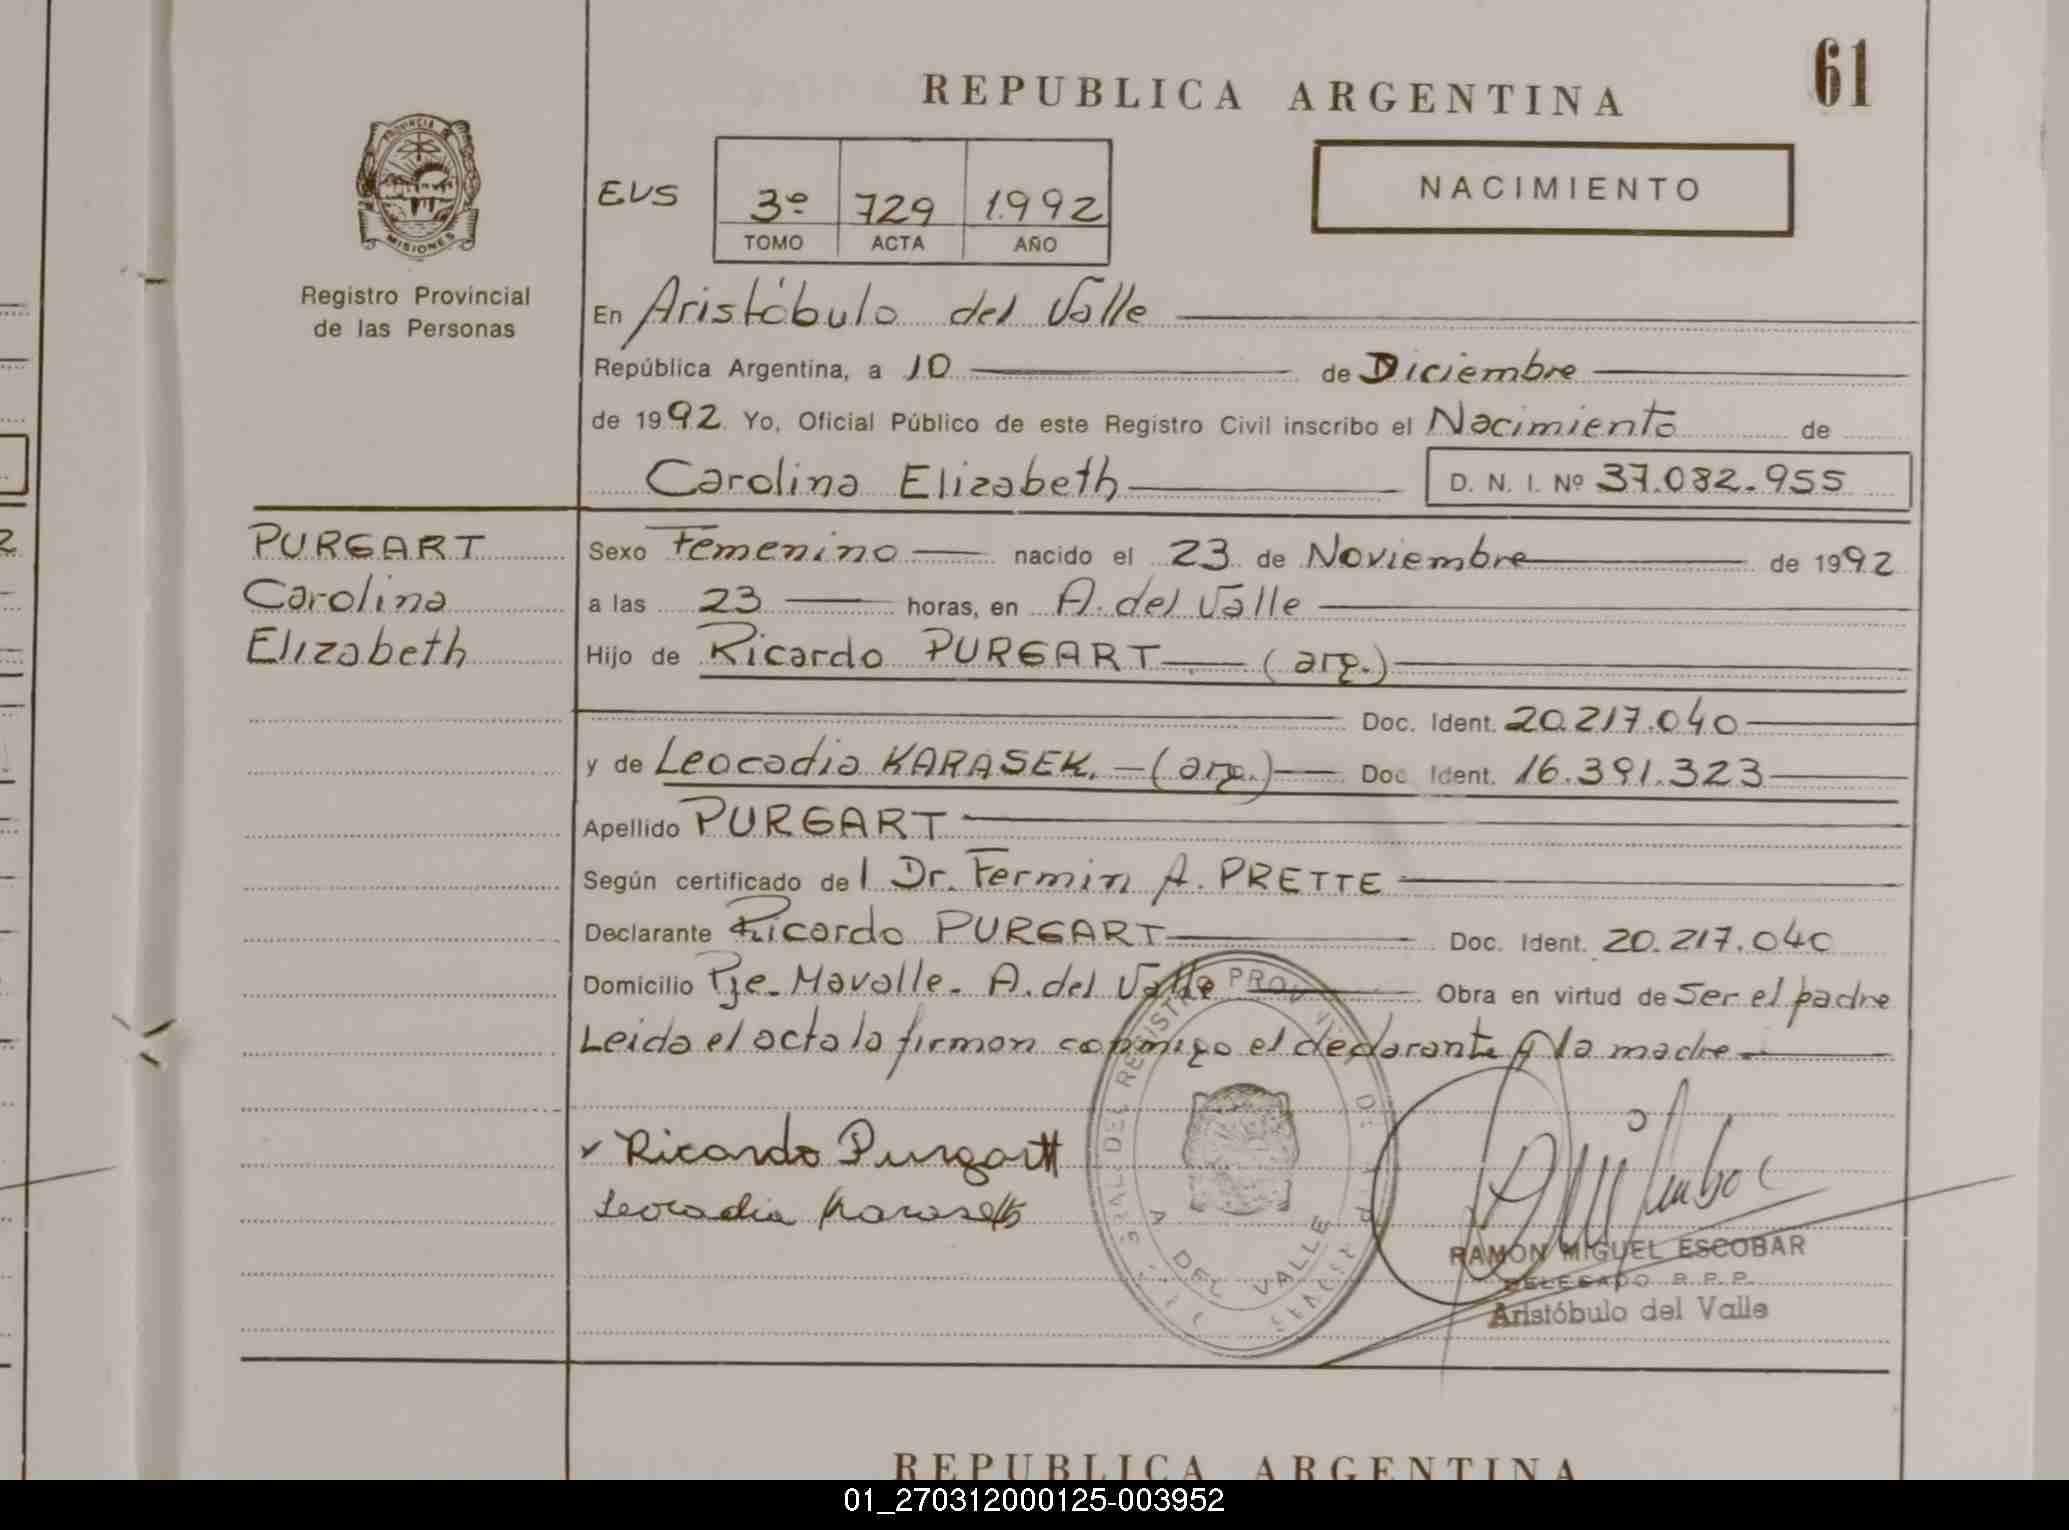 61
REPUBLICA ARGENTINA
PROVINCIA DE
MISIONES
Registro Provincial
de las Personas
EVS
3º 729 1992
TOMO ACTA AÑO
NACIMIENTO
En Aristóbulo del Valle
República Argentina, a 10 de Diciembre
de 1992. Yo, Oficial Público de este Registro Civil inscribo el Nacimiento de
Carolina Elizabeth D. N. I. Nº 37.082.955
PURGART
Carolina
Elizabeth
Sexo Femenino nacido el 23 de Noviembre de 1992
a las 23 horas, en A. del Valle
Hijo de Ricardo PURGART (arg.)
Doc. Ident. 20.217.040
y de Leocadia KARASEK. (arg.) Doc. Ident. 16.391.323
Apellido PURGART
Según certificado del Dr. Fermin A. PRETTE
Declarante Ricardo PURGART Doc. Ident. 20.217.040
Domicilio Pje. Mavalle. A. del Valle Obra en virtud de Ser el padre
Leida el acta la firman conmigo el declarante y la madre
Ricardo Purgart
Leocadia Karasek
A DEL VALLE
RAMON MIGUEL ESCOBAR
DELEGADO R.P.P.
Aristóbulo del Valle
REPUBLICA ARGENTINA
01_270312000125-003952